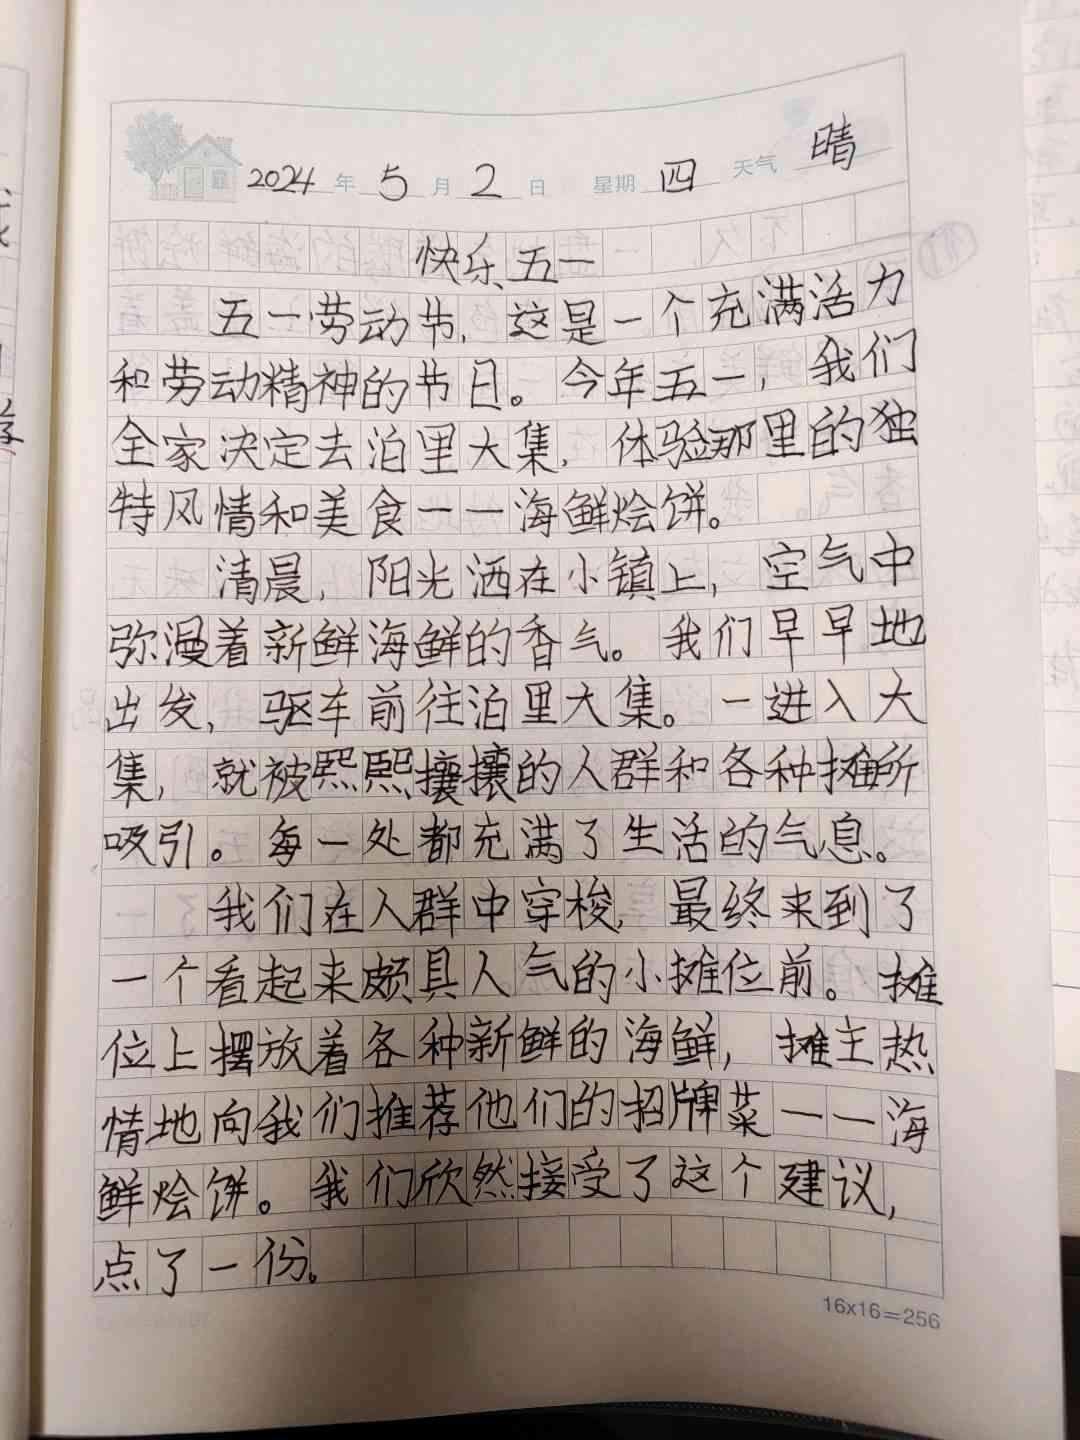 2024年5月2日 星期四 天气 晴
快乐五一
五一劳动节，这是一个充满活力
和劳动精神的节日。今年五一，我们
全家决定去泊里大集，体验那里的独
特风情和美食——海鲜烩饼。
清晨，阳光洒在小镇上，空气中
弥漫着新鲜海鲜的香气。我们早早地
出发，驱车前往泊里大集。一进入大
集，就被熙熙攘攘的人群和各种摊所
吸引。每一处都充满了生活的气息。
我们在人群中穿梭，最终来到了
一个看起来颇具人气的小摊位前。摊
位上摆放着各种新鲜的海鲜，摊主热
情地向我们推荐他们的招牌菜——海
鲜烩饼。我们欣然接受了这个建议，
点了一份。
16x16=256